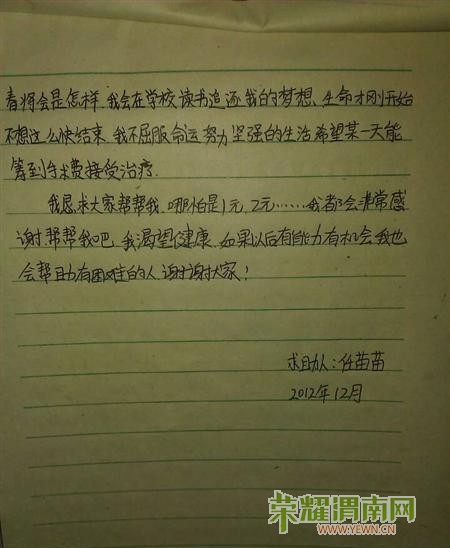 春将会是怎样.我会在学校读书追逐我的梦想、生命才刚开始
不想这么快结束.我不屈服命运努力坚强的生活希望某一天能
筹到手术费接受治疗.
我恳求大家帮帮我.哪怕是1元,2元……我都会非常感
谢.帮帮我吧.我渴望健康.如果以后有能力有机会.我也
会帮助有困难的人.谢谢大家!
求助人:任苗苗
2012年12月
荣耀渭南网
WWW.YEWN.CN